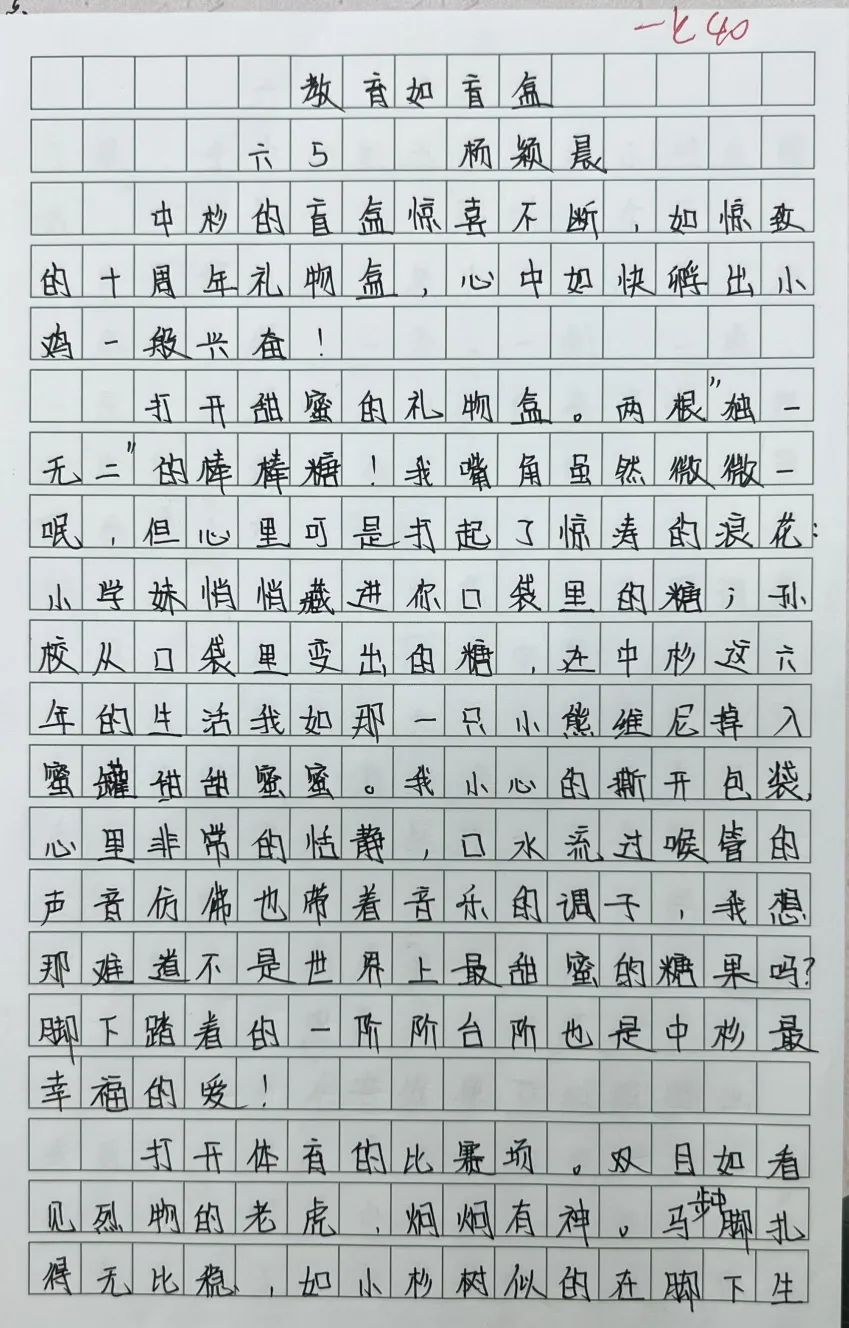 一七40
教育如盲盒
六5 杨颖晨
中杉的盲盒惊喜不断,如惊致
的十周年礼物盒,心中如快孵出小
鸡一般兴奋!
打开甜蜜的礼物盒。两根"独一
无二"的棒棒糖!我嘴角虽然微微一
呡,但心里可是打起了惊涛的浪花:
小学妹悄悄藏进你口袋里的糖;孙
校从口袋里变出的糖,在中杉这六
年的生活我如那一只小熊维尼掉入
蜜罐甜甜蜜蜜。我小心的撕开包袋,
心里非常的恬静,口水流过喉管的
声音仿佛也带着音乐的调子,我想
那难道不是世界上最甜蜜的糖果吗?
脚下踏着的一阶阶台阶也是中杉最
幸福的爱!
打开体育的比赛场。双目如看
见烈物的老虎,炯炯有神。马步脚扎
得无比稳,如小杉树似的在脚下生